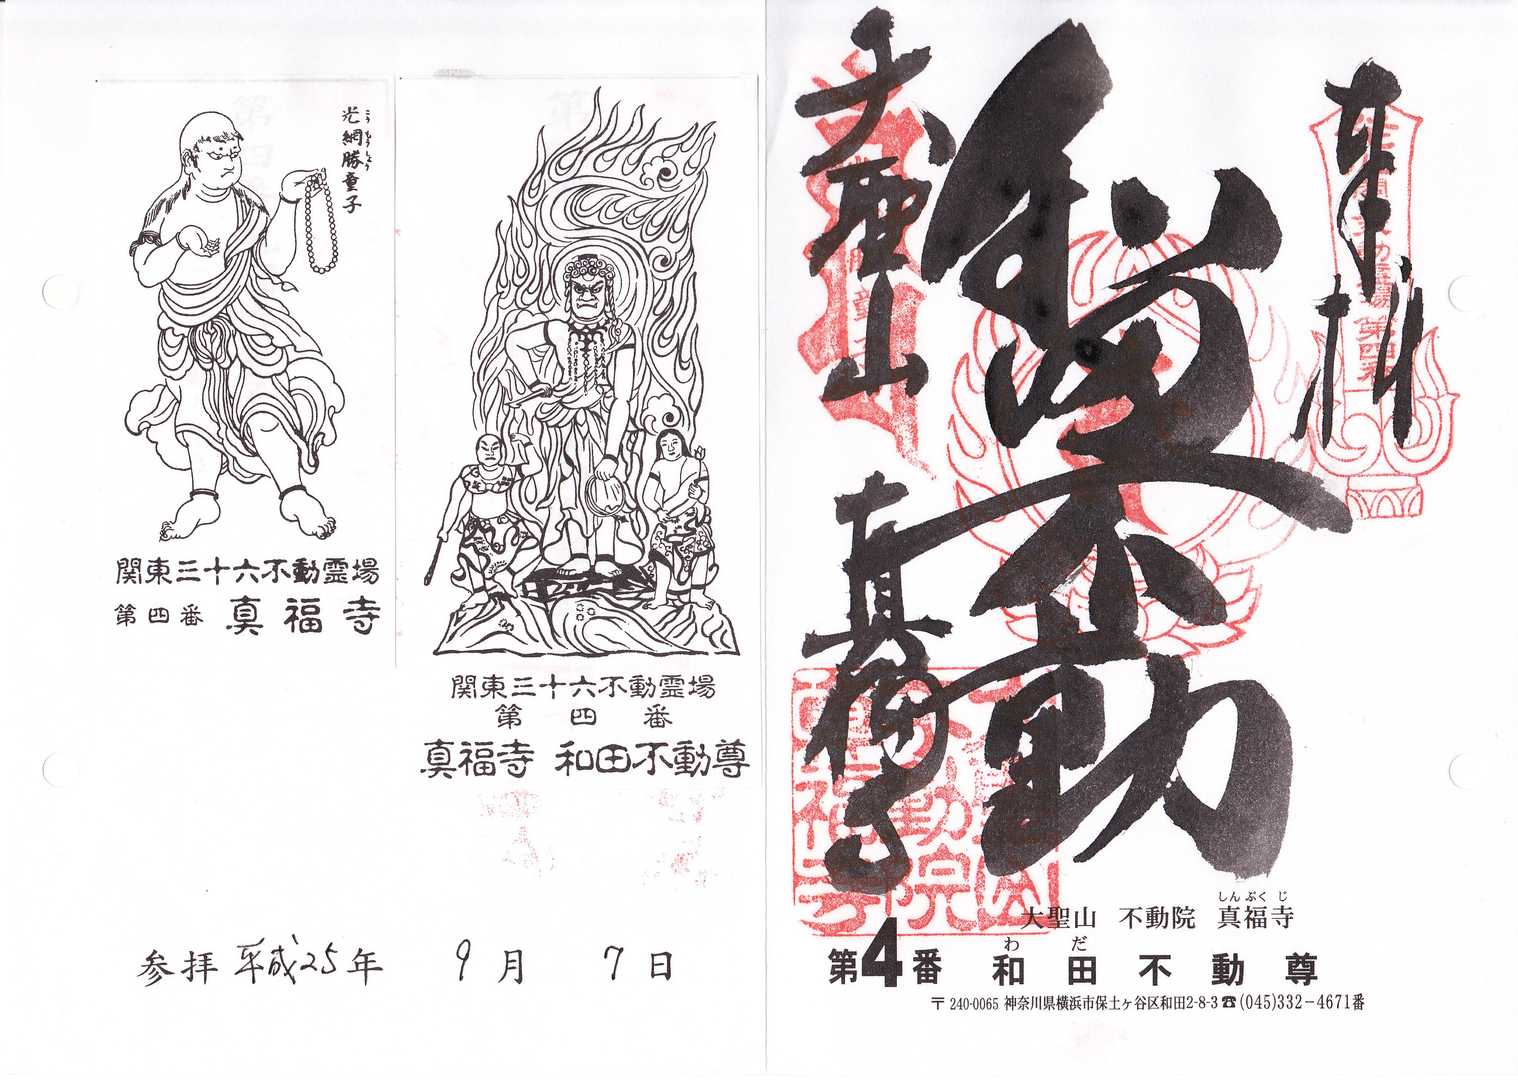 光網勝童子
こうもうしょう
関東三十六不動霊場
第四番 真福寺
関東三十六不動霊場
第四番
真福寺 和田不動尊
参拝 平成25年 9月 7日
奉拝
不動
大聖山
真福寺
しんぷくじ
大聖山 不動院 真福寺
わだ
第4番 和田不動尊
〒240-0065 神奈川県横浜市保土ヶ谷区和田2-8-3☎(045)332-4671番